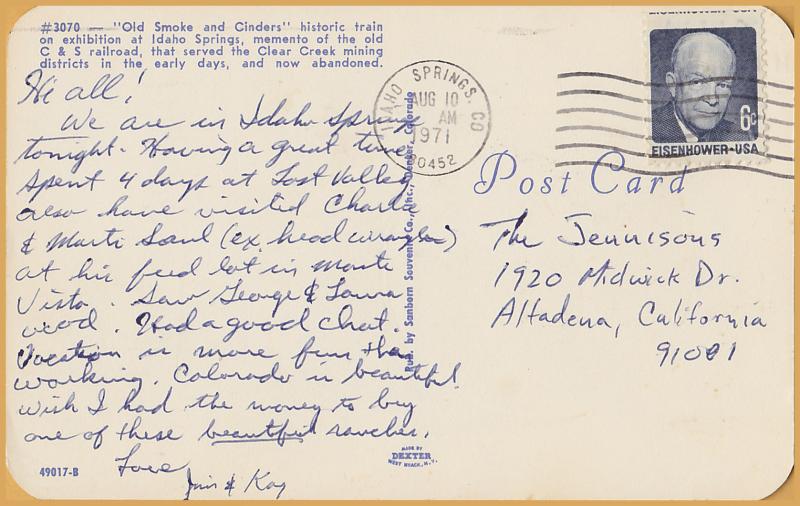 #3070 — "Old Smoke and Cinders" historic train
on exhibition at Idaho Springs, memento of the old
C & S railroad, that served the Clear Creek mining
districts in the early days, and now abandoned.
Hi all!
We are in Idaho Springs
tonight. Having a great time
spent 4 days at Lost Valley
also have visited Charlie
& Marti Saul (ex. head wrangler)
at his feed lot in Monte
Vista. Saw George & Laura
Wood. Had a good chat.
Vacation is more fun than
working. Colorado is beautiful
wish I had the money to buy
one of these beautiful ranches.
Love
Jim & Kay
49017-B
Pub. by Sanborn Souvenir Co., Inc., Denver, Colorado
MADE BY
DEXTER
WEST NYACK, N.Y.
IDAHO SPRINGS, CO
AUG 10
AM
1971
80452
EISENHOWER·USA
6c
EISENHOWER·USA
Post Card
The Jennisons
1920 Midwick Dr.
Altadena, California
91001